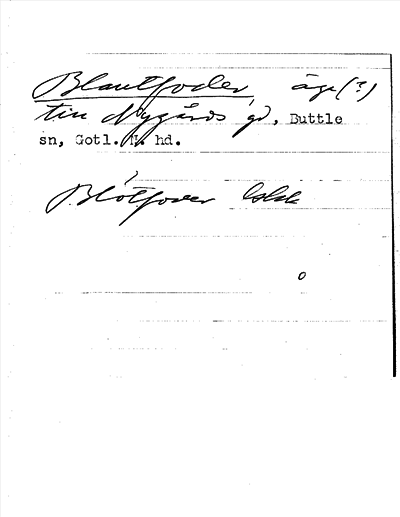 Blautfoder, äga(?)
till Nygårds gd, Buttle
sn, Gotl. N. hd.
Blötfoder
o